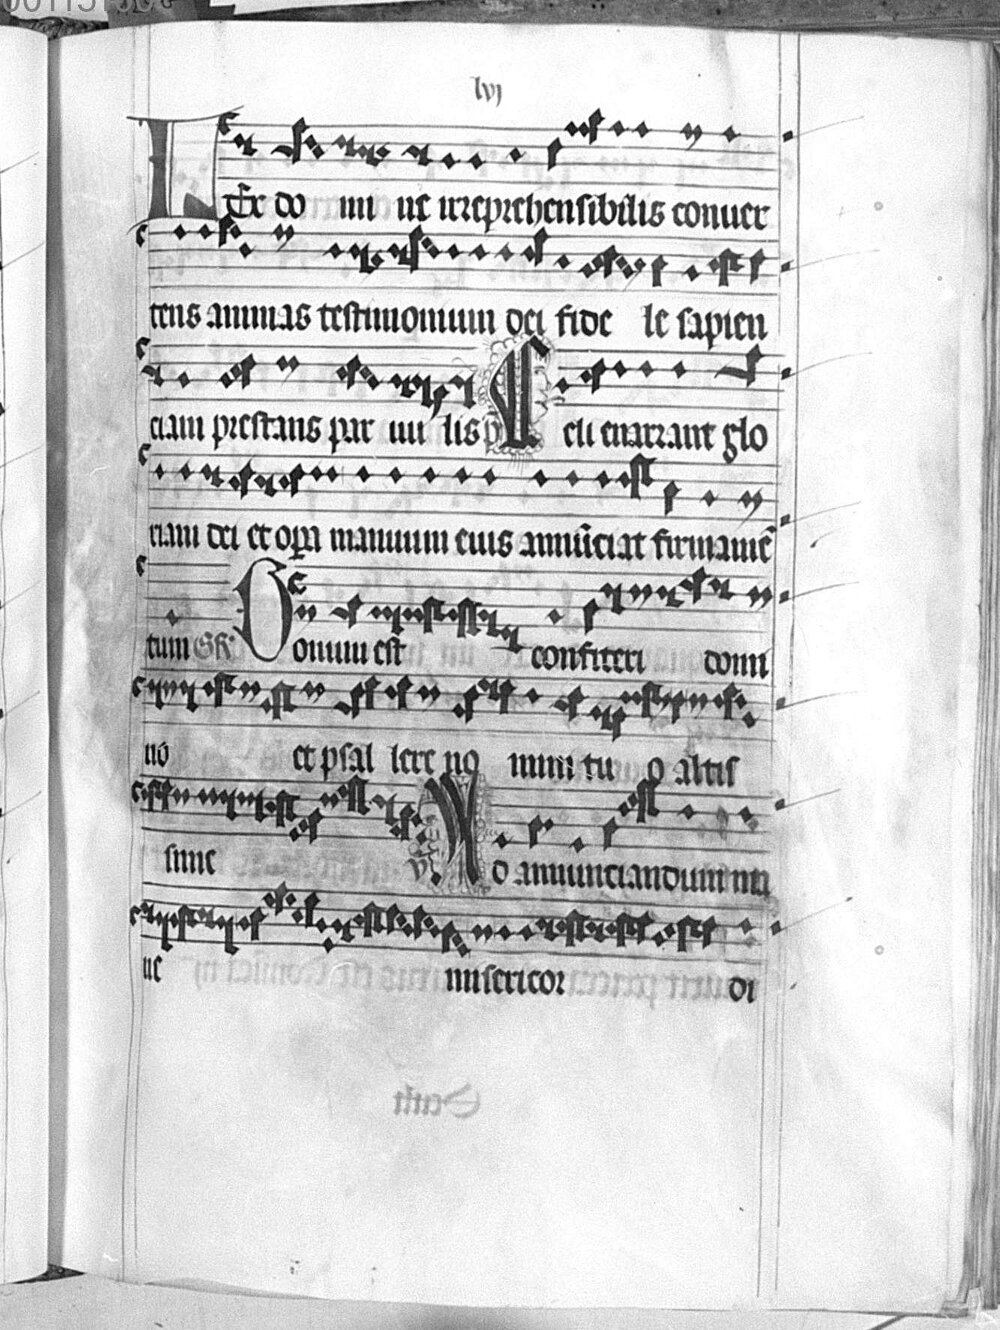 lvj
LEx do mi ne irreprehensibilis conuer
tens animas testimonium dei fide le sapien
ciam prestans par uu lis ps Celi enarrant glo
riam dei et opera manuum eius annūciat firmamē
tum GR Bonum est confiteri domi
no et psal lere no mini tu o altis
sime v Ad annunciandum ma
ne misericor di